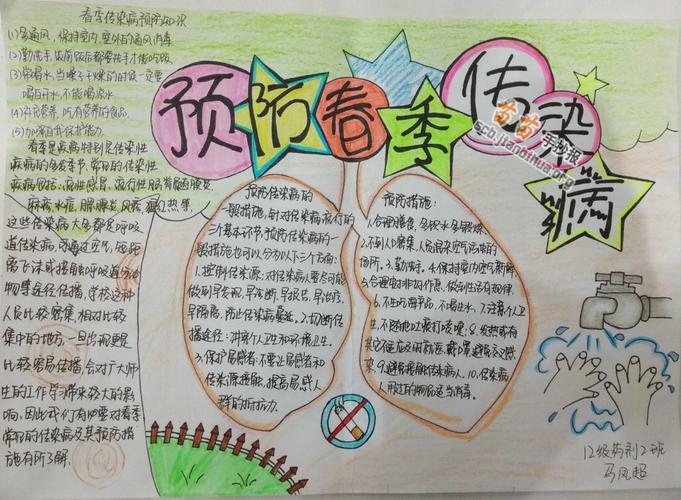 春季传染病预防知识
(1)多通风,保持室内,室外的通风消毒
(2)勤洗手,饭前饭后都要洗手才能吃饭
(3)常喝水,当嗓子干燥的时候一定要
喝白开水,不能喝凉水
(4)补充营养,吃有营养的食品
(5)加强自我保护能力
春季是疾病特别是传染性
疾病的多发季节,常见的传染性
疾病包括:流性感冒、流行性脑脊髓膜炎
麻疹、水痘、腮腺炎、风疹、猩红热等
这些传染病大多都是呼吸
道传染病,可通过空气,短距
离飞沫或接触呼吸道分泌
物等途径传播,学校这种
人员比较密集,相对比较
集中的地方,一旦出现更是
比较容易传播,会对广大师
生的工作学习带来较大的影
响,因此我们有必要对春季
常见的传染病及其预防措
施有所了解.
预防春季传染病
苗苗手抄报
scb.jianbihua.org
预防传染病的
一般措施,针对传染病流行的
三个基本环节,预防传染病的一
般措施也可以分为以下三个方面:
1.控制传染源:对传染病人要尽可能
做到早发现,早诊断,早报告,早治疗,
早隔离,防止传染病蔓延,2.切断传
播途径:讲究个人卫生和环境卫生.
3.保护易感者:不要让易感者和
传染源接触,提高易感人
群的抵抗力
预防措施:
1.合理膳食,多饮水多锻炼.
2.不到人口密集,人员混杂空气污染的
场所.3.勤洗手.4.保持室内空气新鲜
5.合理安排作息,做到生活有规律.
6.不生吃海产品,不喝生水.7.注意个人卫
生,不随地吐痰打喷嚏;8.发热或有
其它不适应及时就医,戴口罩避免交叉感
染.9.避免接触传染病人.10.传染病人
用过的物品适当消毒.
12级药剂2班
马凤超